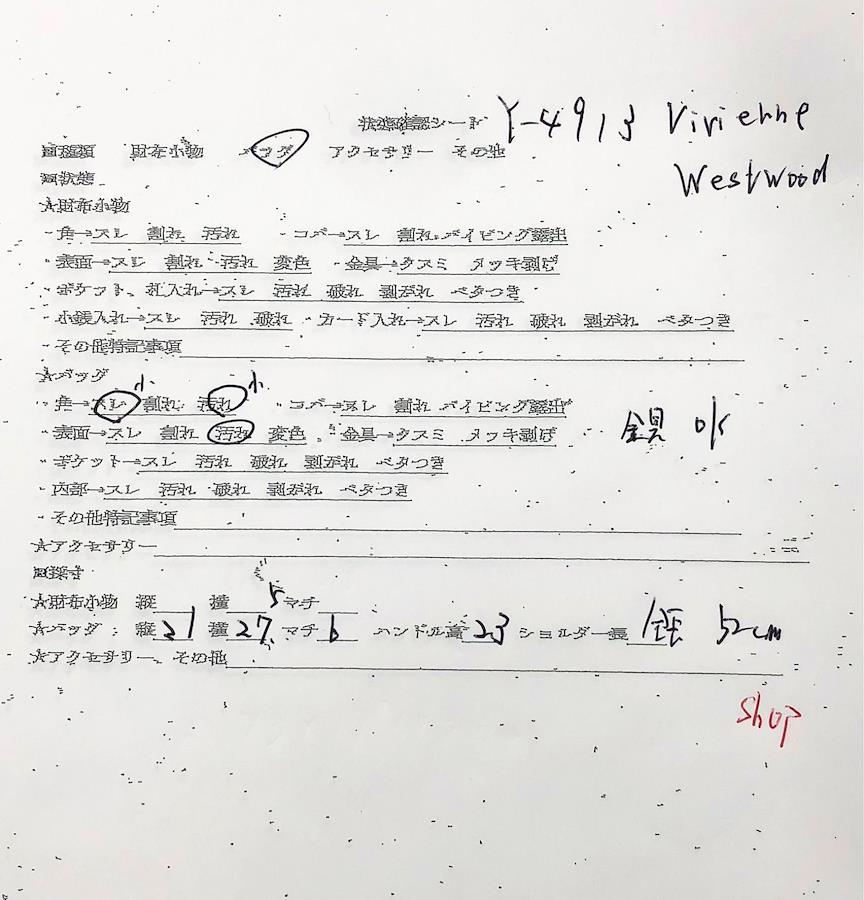 状態確認シート Y-4913 Vivienne
■種類 財布小物 バッグ アクセサリー その他
Westwood
■状態
★財布小物
・角→スレ 割れ 汚れ ・コバ→スレ 割れ パイピング露出
・表面→スレ 割れ 汚れ 変色 ・金具→クスミ メッキ剥げ
・ポケット、札入れ→スレ 汚れ 破れ 剥がれ ベタつき
・小銭入れ→スレ 汚れ 破れ ・カード入れ→スレ 汚れ 破れ 剥がれ ベタつき
・その他特記事項
★バッグ 小 小
・角→スレ 割れ 汚れ ・コバ→スレ 割れ パイピング露出
・表面→スレ 割れ 汚れ 変色 ・金具→クスミ メッキ剥げ 金具 ok
・ポケット→スレ 汚れ 破れ 剥がれ ベタつき
・内部→スレ 汚れ 破れ 剥がれ ベタつき
・その他特記事項
★アクセサリー
■採寸
★財布小物 縦 横 マチ
★バッグ：縦21 横27.5 マチ6 ハンドル高23 ショルダー長 52cm
★アクセサリー、その他
Shop